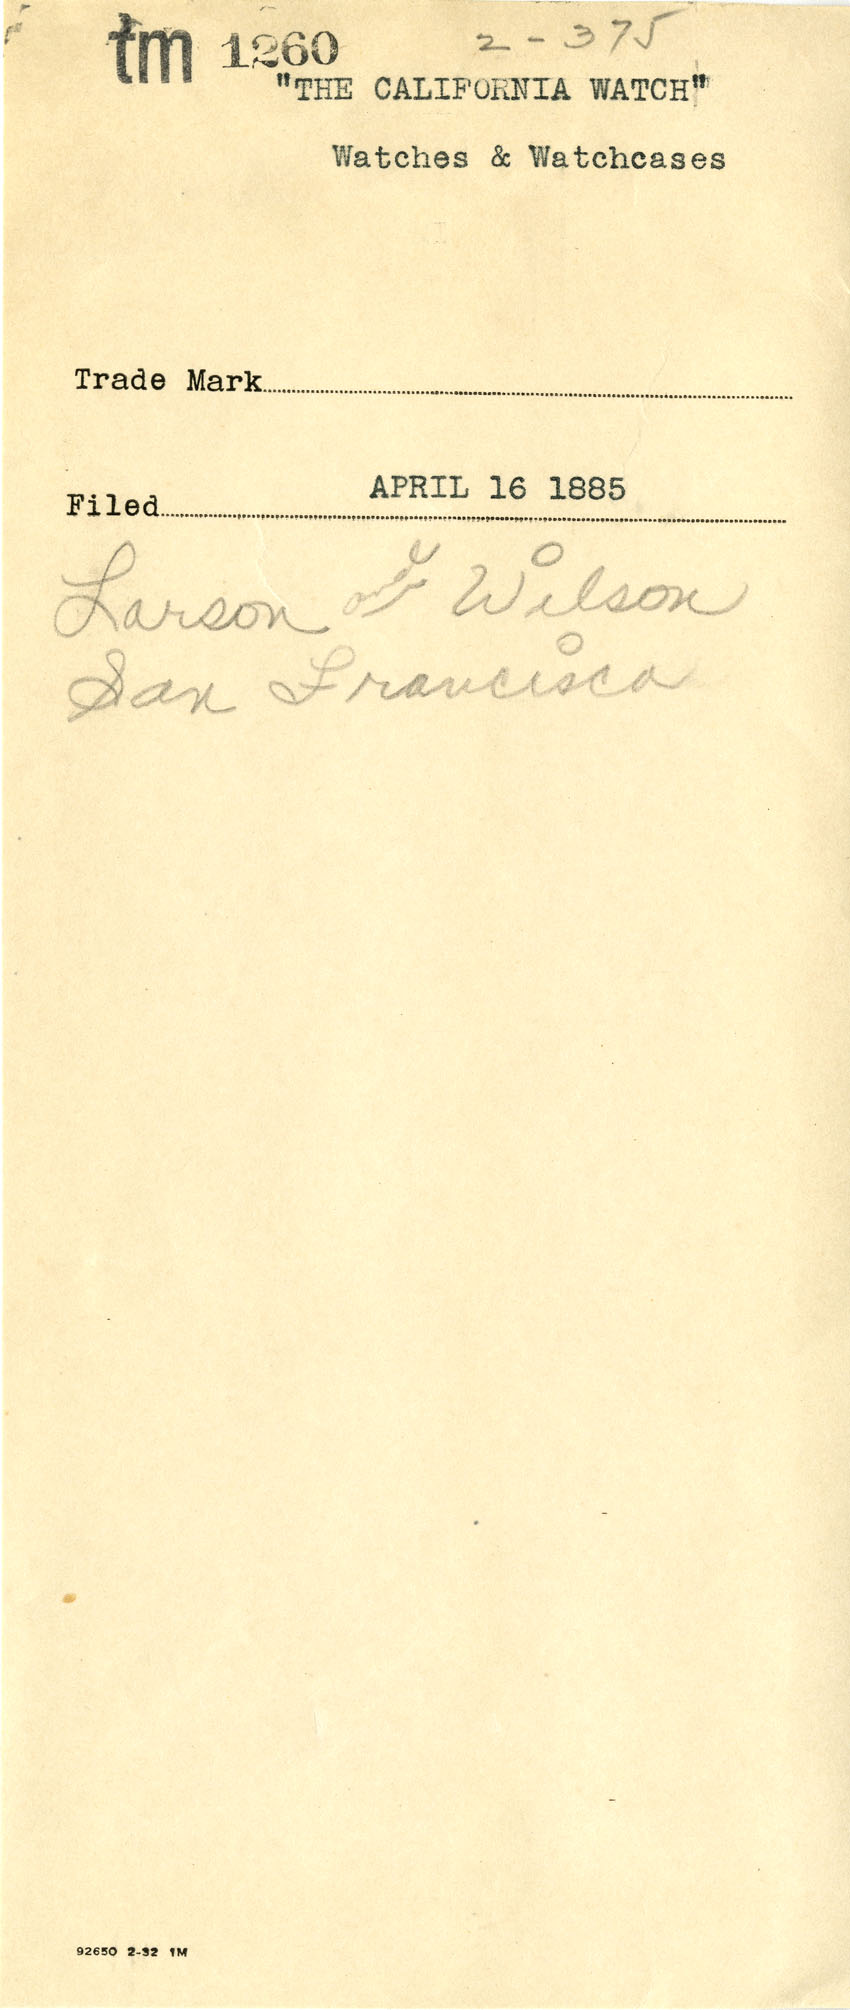 tm 1260 2-375
"THE CALIFORNIA WATCH"
Watches & Watchcases
Trade Mark
Filed APRIL 16 1885
Larson and Wilson
San Francisco
92650 2-32 1M